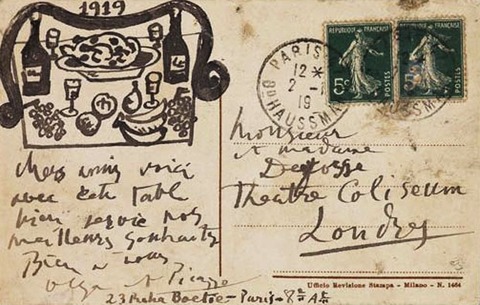 1919
Mes amis voici
avec cette table
bien servie nos
meilleurs souhaits
Bien à vous
Olga et Picasso
23 Rue La Boétie - Paris - 8e Ar
REPUBLIQUE FRANÇAISE
5c
POSTES
REPUBLIQUE FRANÇAISE
5c
POSTES
PARIS
12
2 - 1
19
Bd HAUSSM
Monsieur
et madame
Theatre Coliseum
Londres
Ufficio Revisione Stampa - Milano - N. 1464